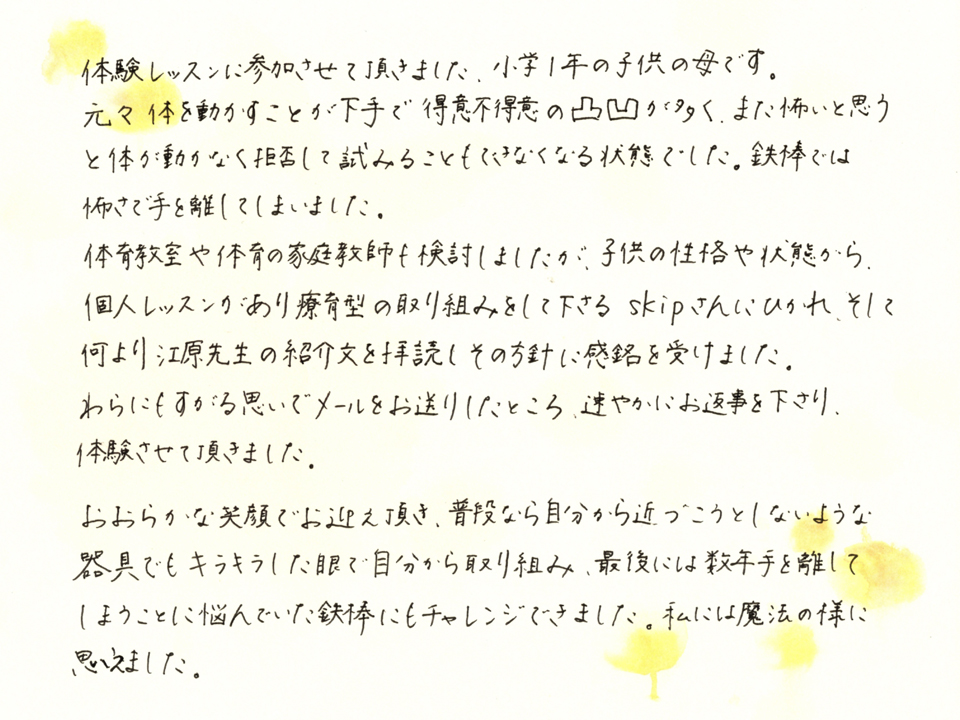 体験レッスンに参加させて頂きました、小学1年の子供の母です。
元々体を動かすことが下手で得意不得意の凸凹が多く、また怖いと思う
と体が動かなく拒否して試みることもできなくなる状態でした。鉄棒では
怖さで手を離してしまいました。
体育教室や体育の家庭教師も検討しましたが、子供の性格や状態から、
個人レッスンがあり療育型の取り組みをして下さる skipさんにひかれ、そして
何より江原先生の紹介文を拝読しその方針に感銘を受けました。
わらにもすがる思いでメールをお送りしたところ、速やかにお返事を下さり、
体験させて頂きました。
おおらかな笑顔でお迎え頂き、普段なら自分から近づこうとしないような
器具でもキラキラした眼で自分から取り組み、最後には数年手を離して
しまうことに悩んでいた鉄棒にもチャレンジできました。私には魔法の様に
思えました。